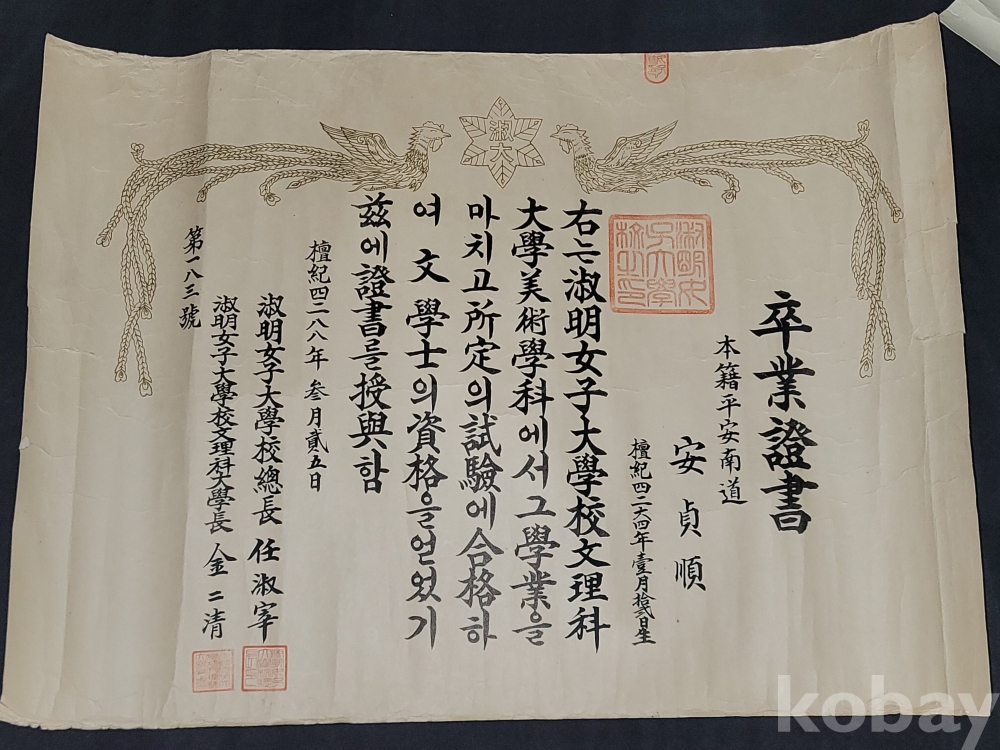 卒業證書
本籍平安南道
安貞順
檀紀四二六四年壹月拾貳日生
右는淑明女子大學校文理科
大學美術學科에서그學業을
마치고所定의試驗에合格하
여文學士의資格을얻었기
玆에證書를授與함
檀紀四二八八年叁月貳五日
淑明女子大學校總長 任淑宰
淑明女子大學校文理科大學長 金二清
第一八三號
淑大
kobay